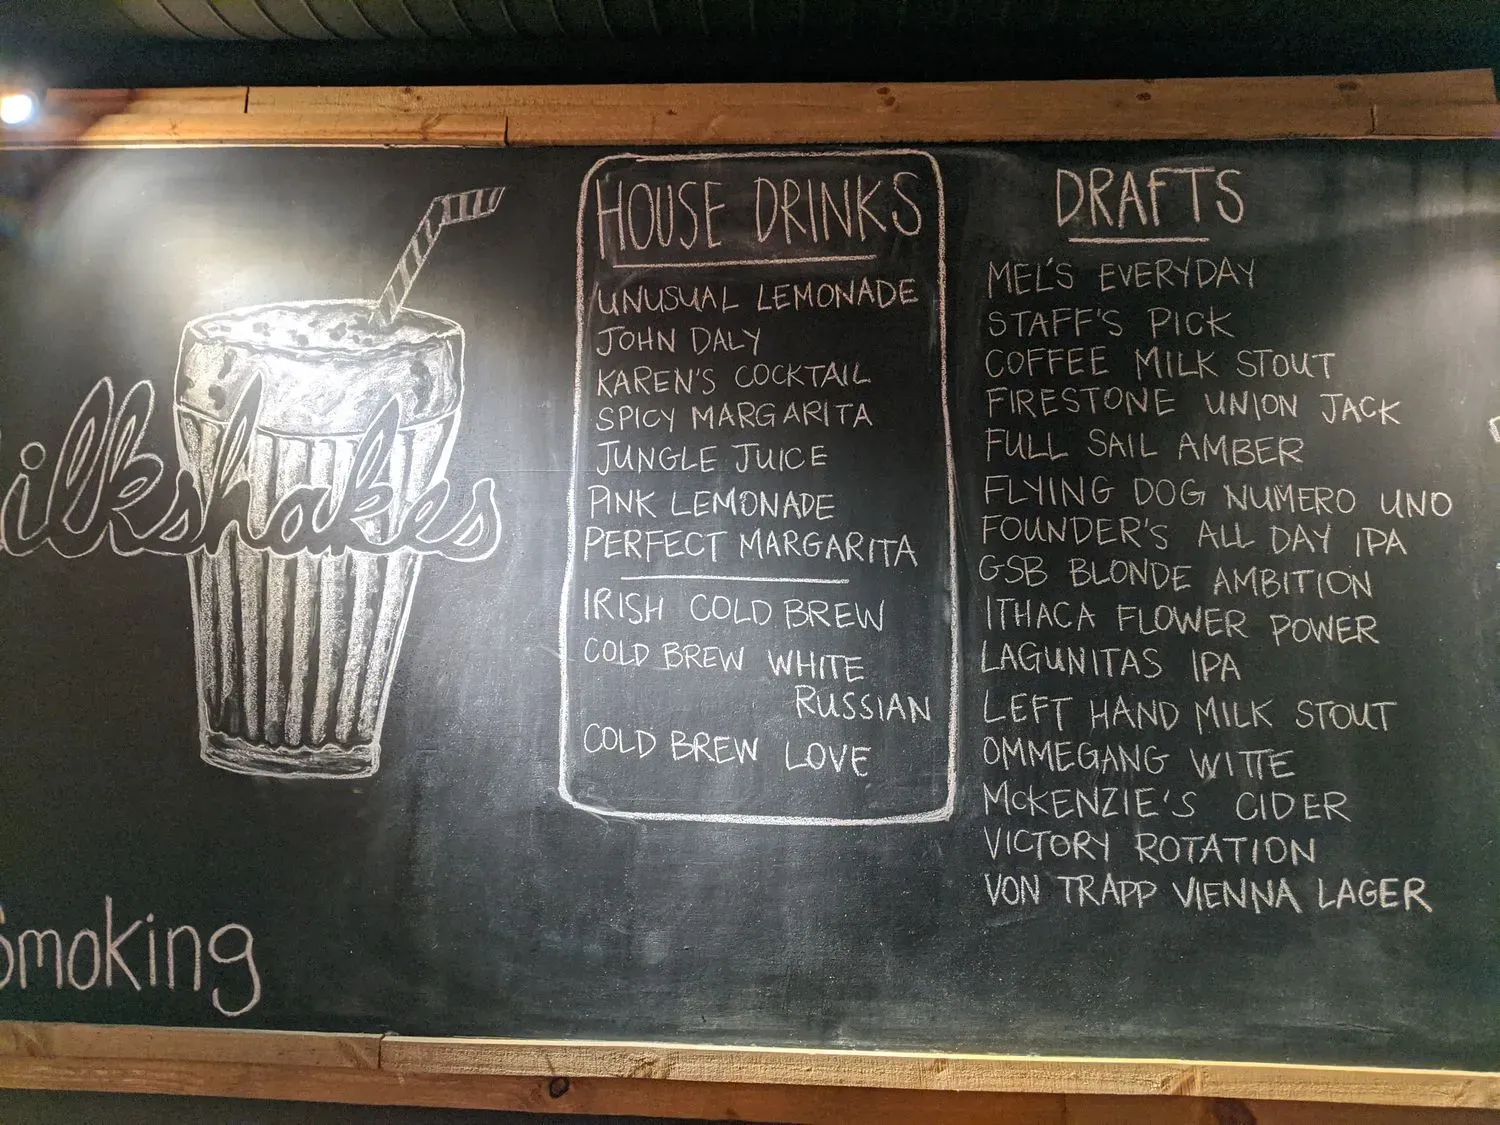 ilkshakes
Smoking
HOUSE DRINKS
UNUSUAL LEMONADE
JOHN DALY
KAREN'S COCKTAIL
SPICY MARGARITA
JUNGLE JUICE
PINK LEMONADE
PERFECT MARGARITA
IRISH COLD BREW
COLD BREW WHITE
RUSSIAN
COLD BREW LOVE
DRAFTS
MEL'S EVERYDAY
STAFF'S PICK
COFFEE MILK STOUT
FIRESTONE UNION JACK
FULL SAIL AMBER
FLYING DOG NUMERO UNO
FOUNDER'S ALL DAY IPA
GSB BLONDE AMBITION
ITHACA FLOWER POWER
LAGUNITAS IPA
LEFT HAND MILK STOUT
OMMEGANG WITTE
McKENZIE'S CIDER
VICTORY ROTATION
VON TRAPP VIENNA LAGER